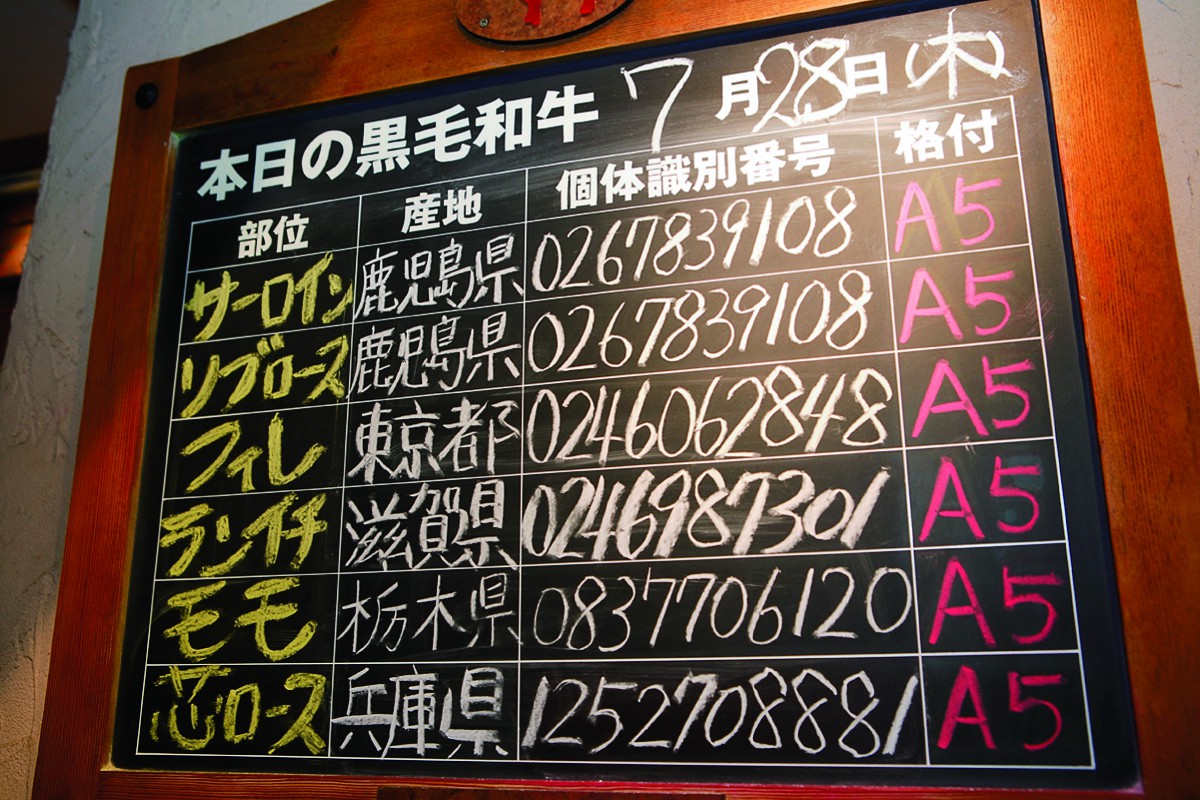 本日の黒毛和牛 7月28日(木)
部位 産地 個体識別番号 格付
サーロイン 鹿児島県 0267839108 A5
リブロース 鹿児島県 0267839108 A5
フィレ 東京都 0246062848 A5
ランイチ 滋賀県 0246987301 A5
モモ 栃木県 0837706120 A5
芯ロース 兵庫県 1252708881 A5